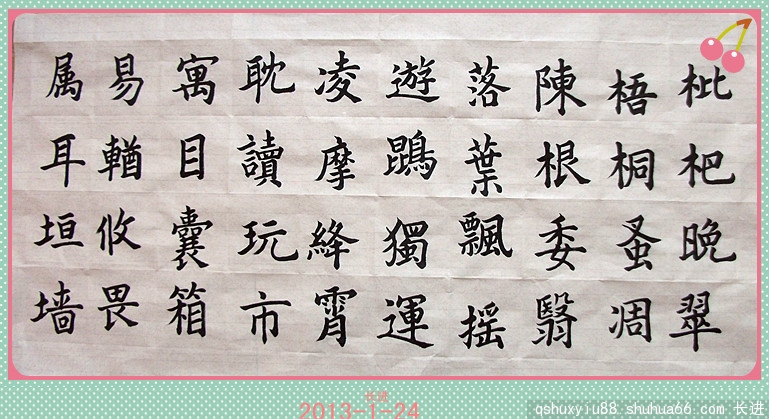 枇杷晚翠
梧桐蚤凋
陳根委翳
落葉飄摇
遊鵾獨運
凌摩絳霄
耽讀玩市
寓目囊箱
易輶攸畏
属耳垣墙
长进
2013-1-24
qshuxyiu88.shuhua66.com 长进